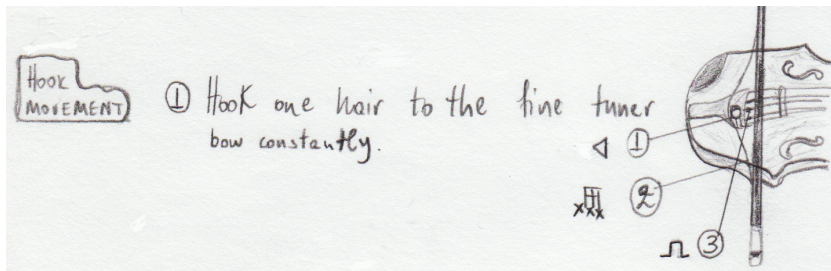 HOOK
MOVEMENT
① Hook one hair to the fine tuner
bow constantly.
①
②
③